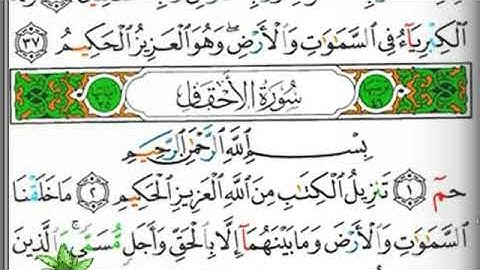 الْكِبْرِيَآءُ فِي السَّمَٰوَٰتِ وَالْأَرْضِ ۖ وَهُوَ الْعَزِيزُ الْحَكِيمُ ٣٧
سُورَةُ الْأَحْقَافِ
بِسْمِ اللَّهِ الرَّحْمَٰنِ الرَّحِيمِ
حمٓ ١ تَنزِيلُ الْكِتَٰبِ مِنَ اللَّهِ الْعَزِيزِ الْحَكِيمِ ٢ مَا خَلَقْنَا
السَّمَٰوَٰتِ وَالْأَرْضَ وَمَا بَيْنَهُمَآ إِلَّا بِالْحَقِّ وَأَجَلٍ مُّسَمًّى ۚ وَالَّذِينَ